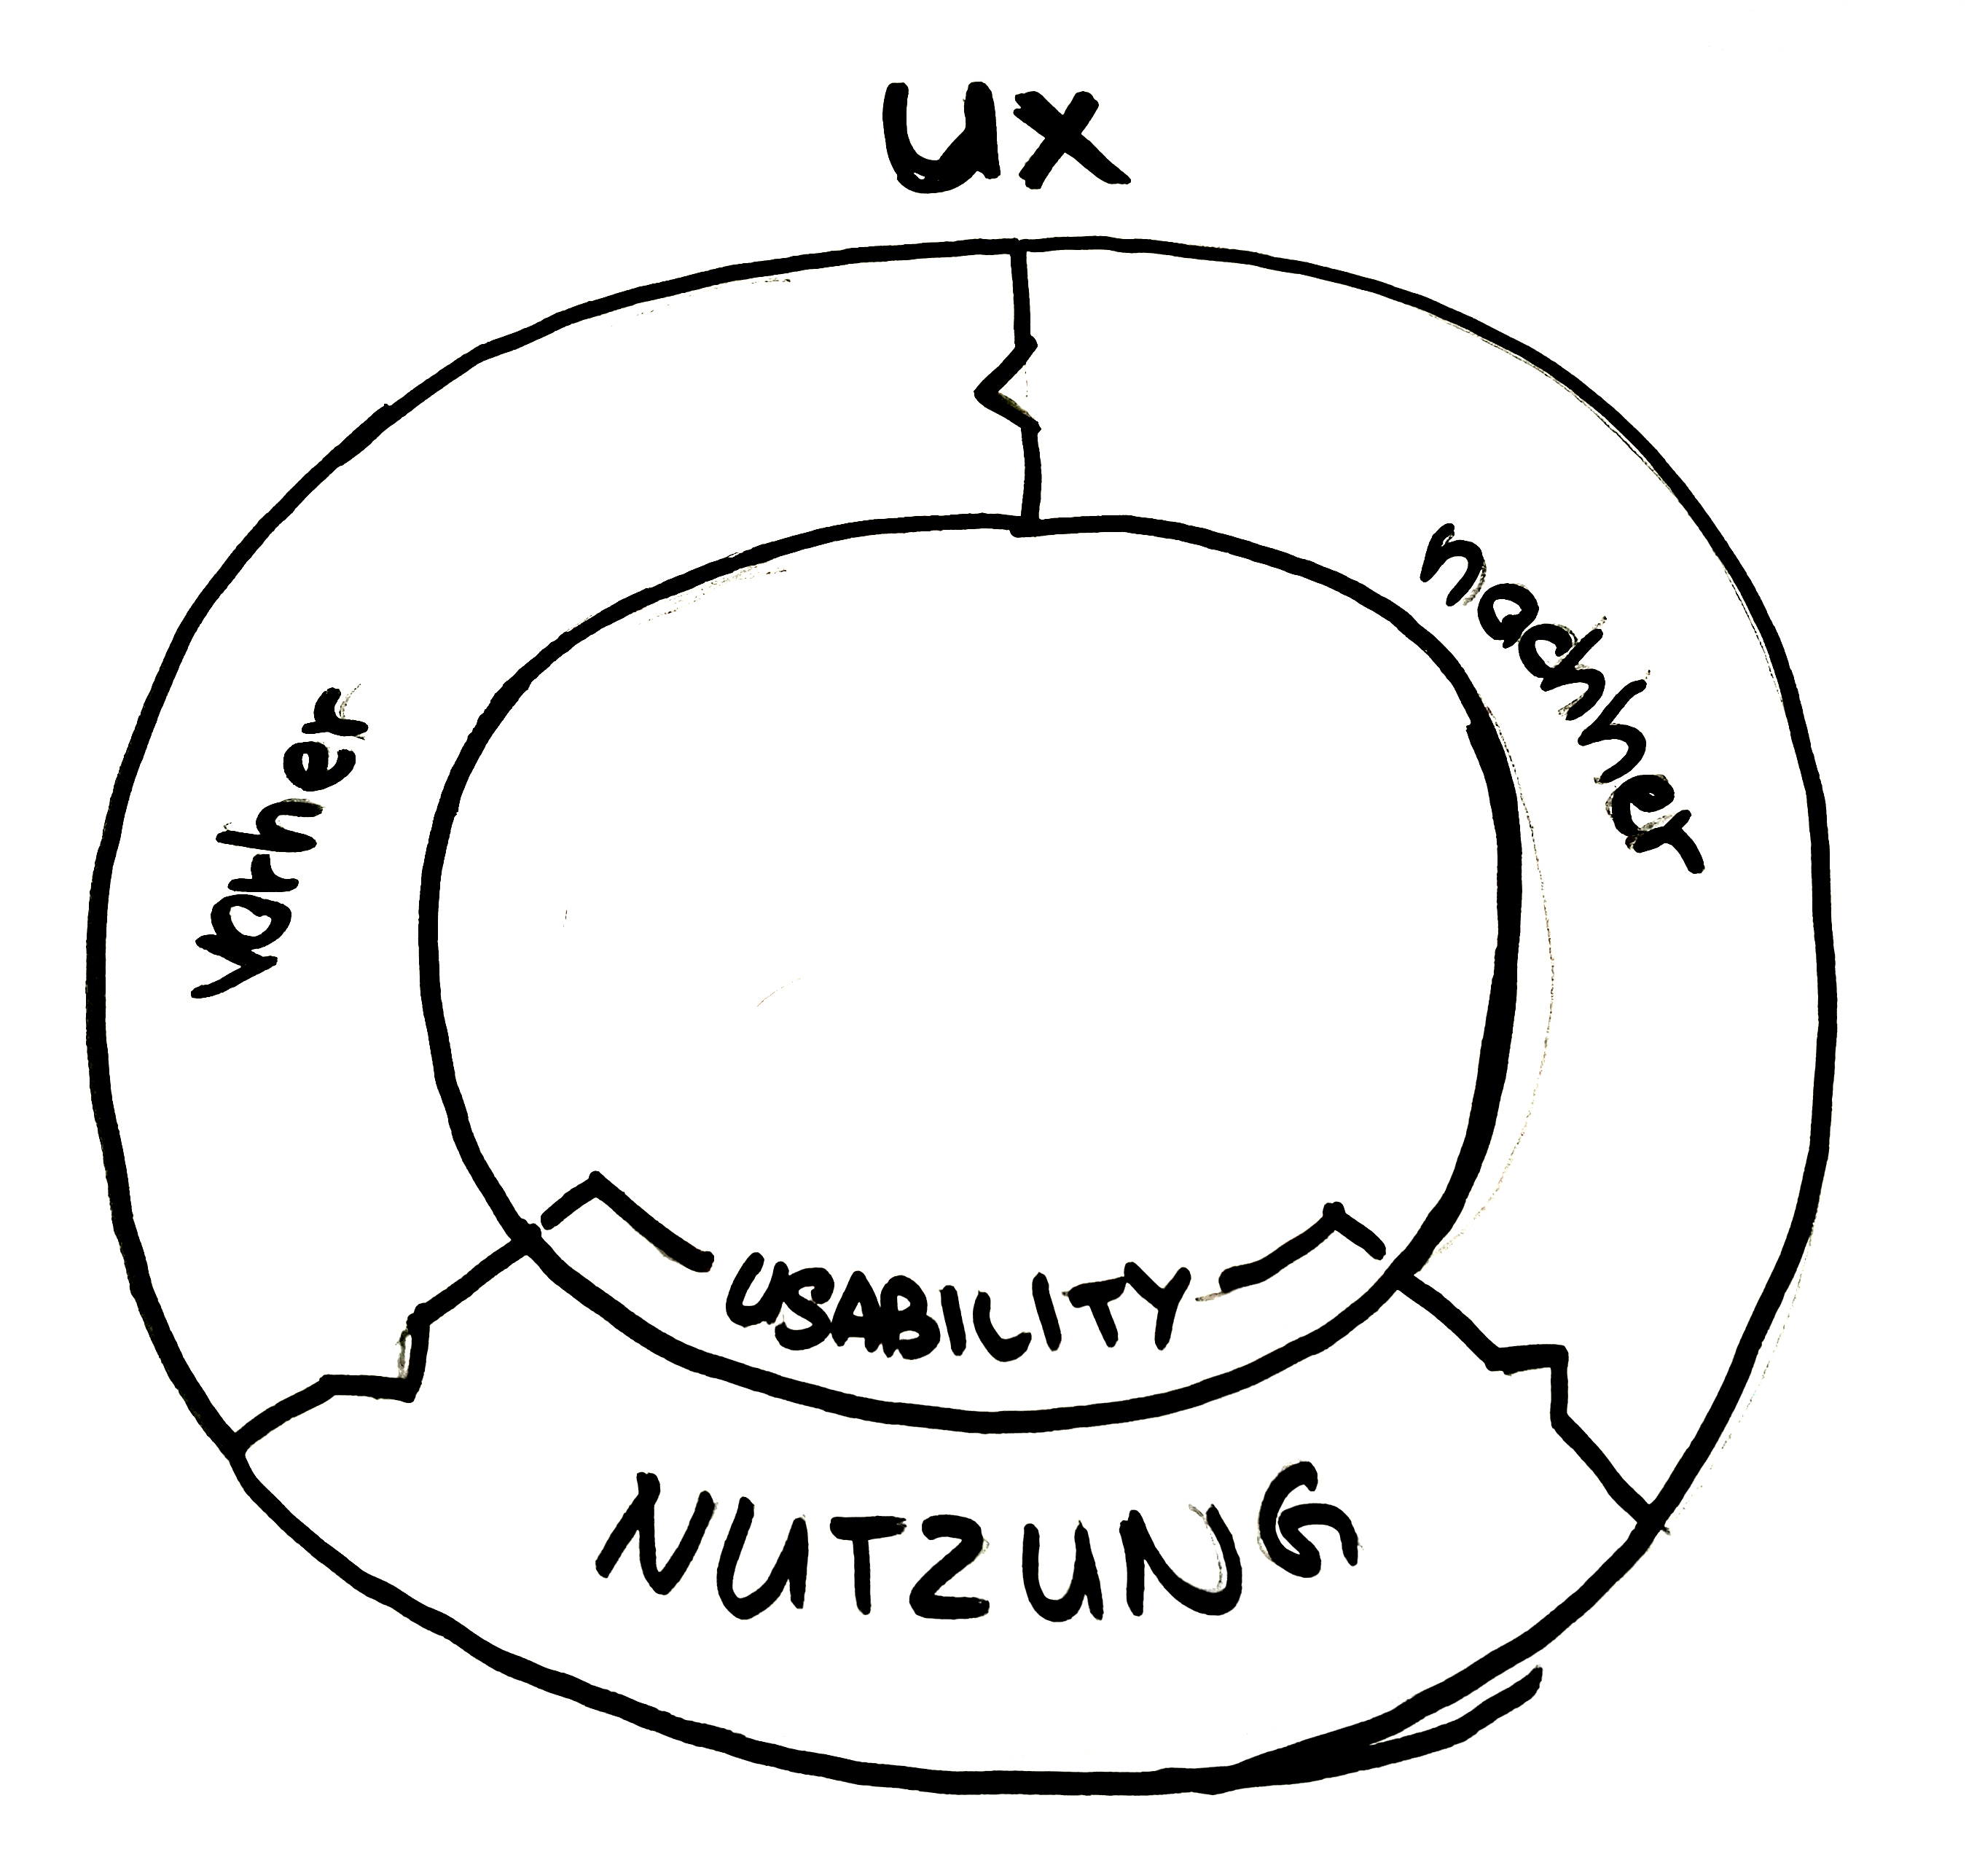 UX
vorher
nachher
USABILITY
NUTZUNG